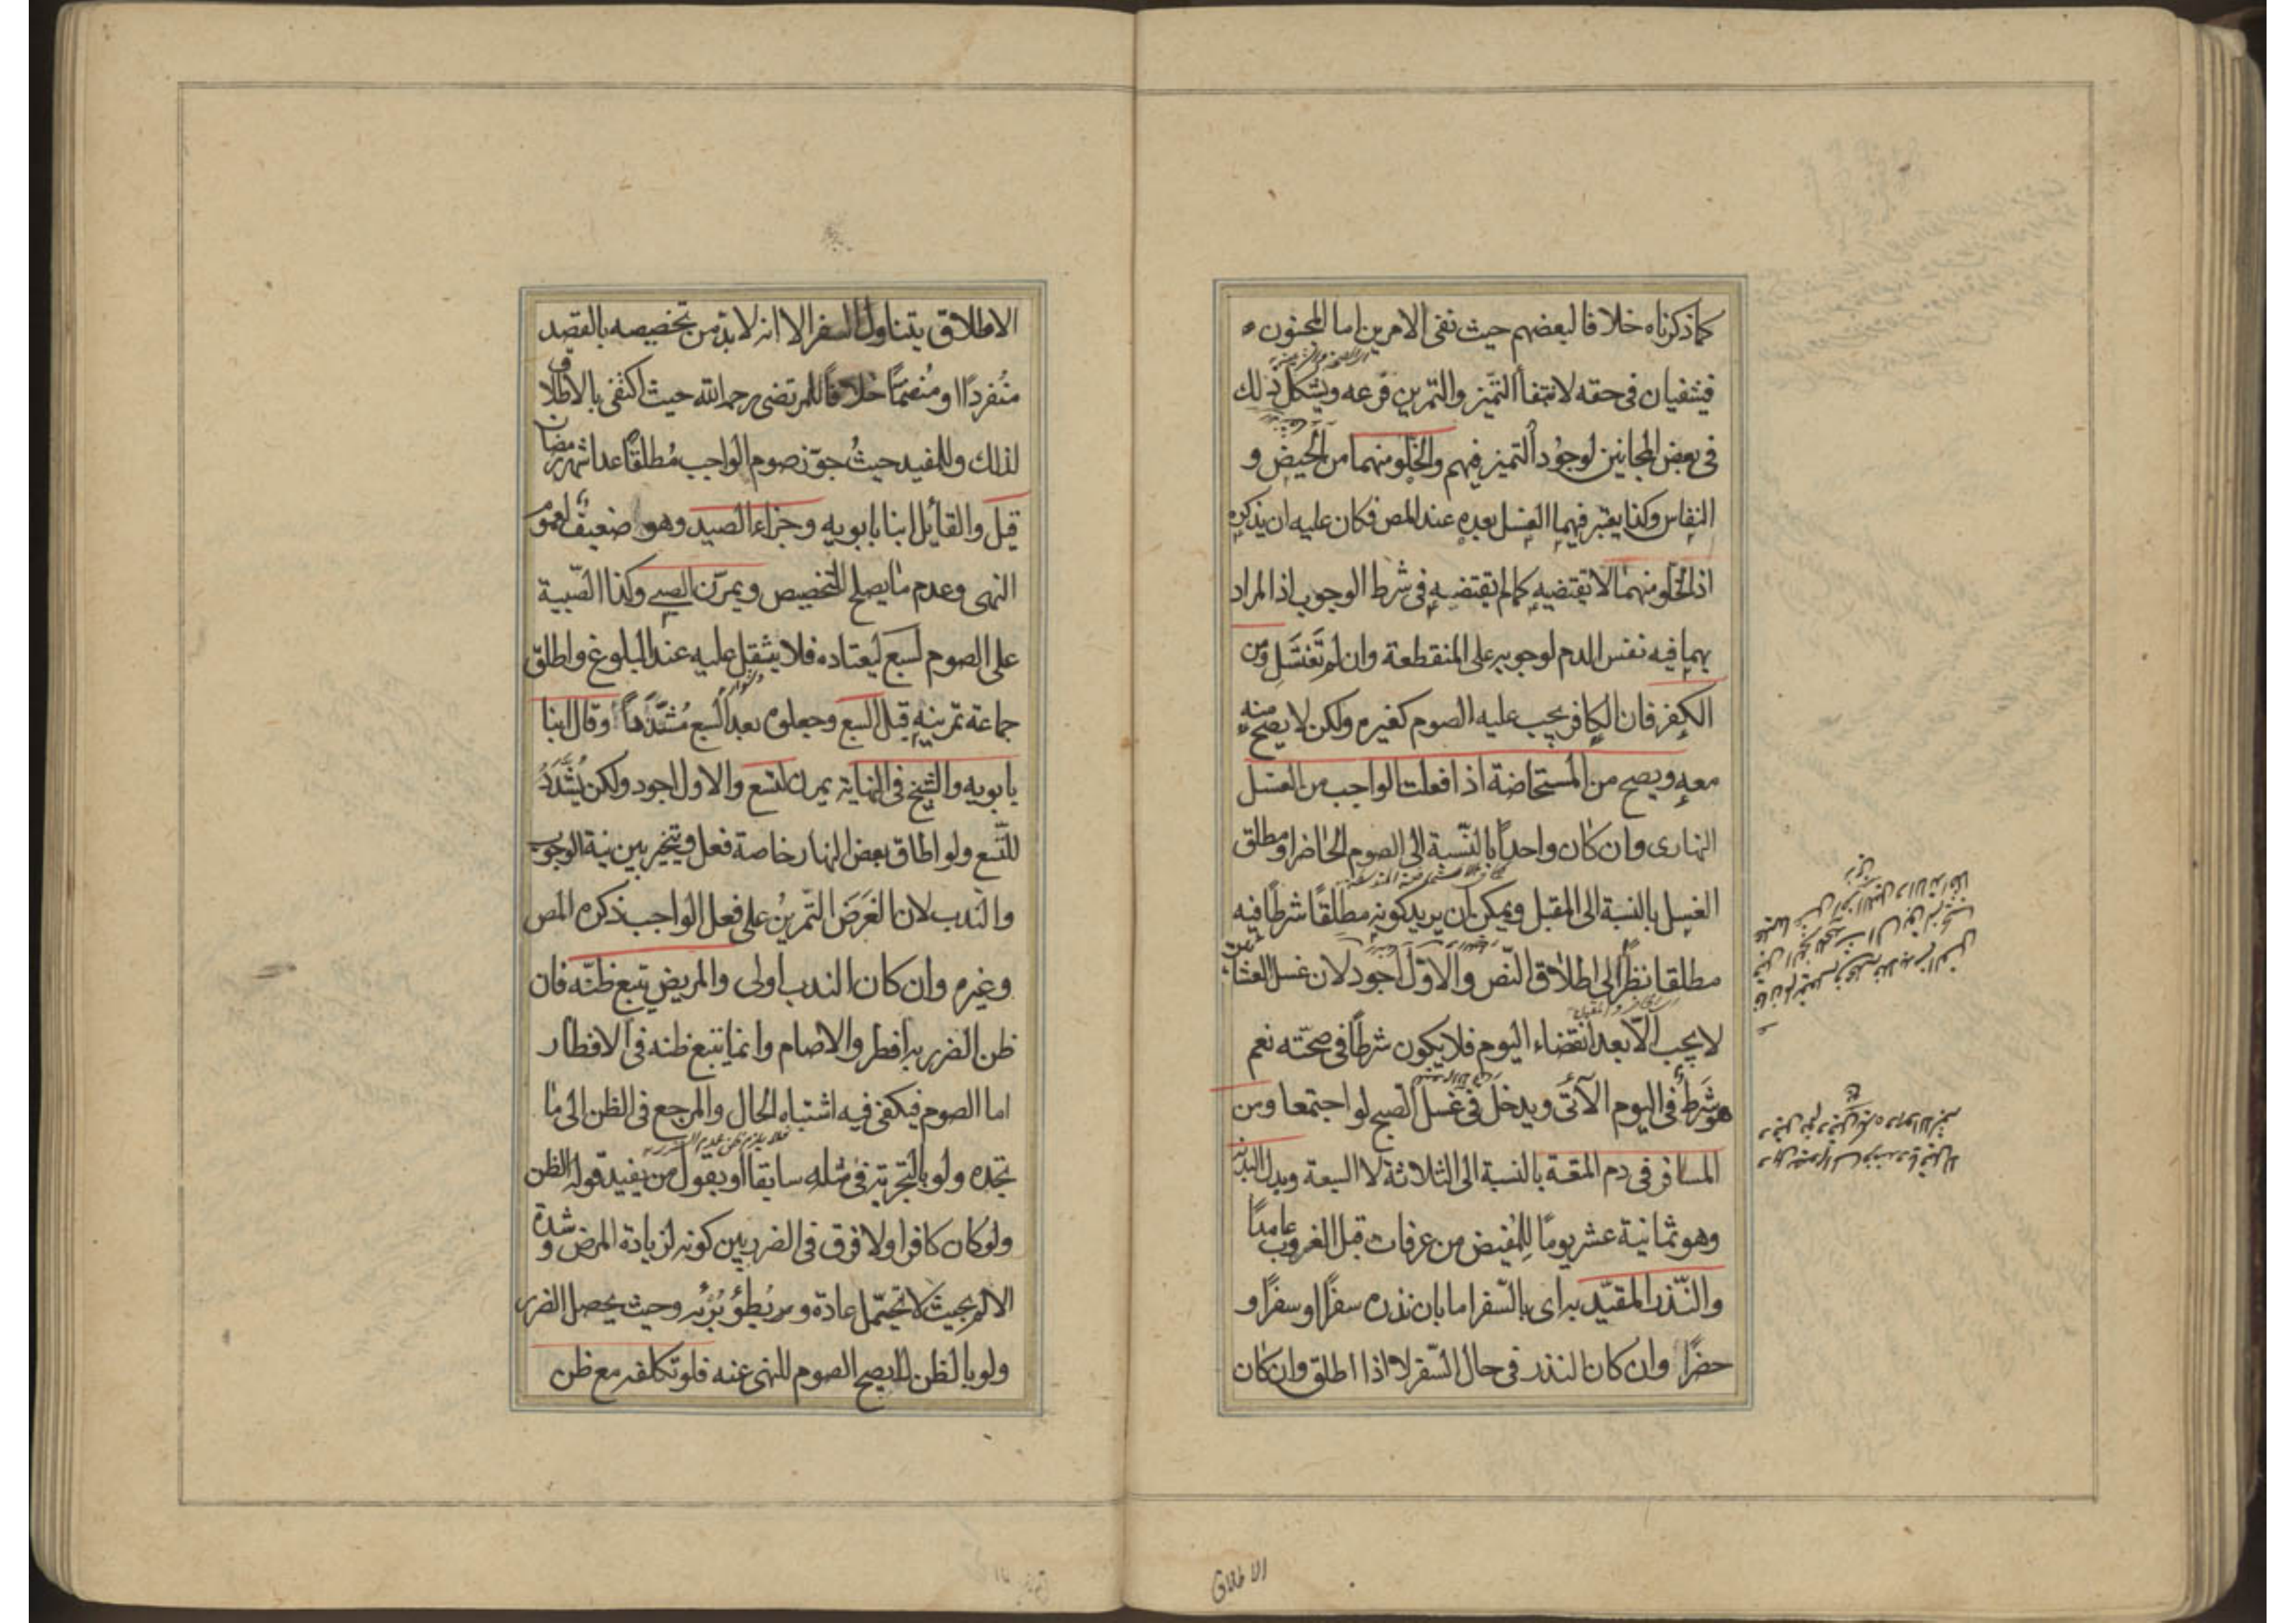 كما ذكرناه خلافا لبعضهم حيث نفى الامرين اما المجنون
فينتفيان فى حقه لانتفاء التميز والتمرين فرعه ويشكل ذلك
فى بعض المجانين لوجود التميز فيهم والخلو منهما من الحيض و
النفاس وكذا يعتبر فيهما الغسل بعده عند المص فكان عليه ان يذكره
اذ الخلو منهما لا يقتضيه كما لم يقتضيه فى شرط الوجوب اذ المراد
بهما فيه نفس الدم لوجوبه على المنقطعة وان لم تغتسل ومن
الكفر فان الكافر يجب عليه الصوم كغيره ولكن لا يصح منه
معه ويصح من المستحاضة اذا فعلت الواجب من الغسل
النهارى وان كان واحدا بالنسبة الى الصوم الحاضر او مطلق
الغسل بالنسبة الى المقبل ويمكن ان يريد كونه مطلقا شرطا فيه
مطلقا نظرا الى اطلاق النص والاول اجود لان غسل العشائين
لا يجب الا بعد انقضاء اليوم فلا يكون شرطا فى صحته نعم
هو شرط فى اليوم الآتى ويدخل فى غسل الصبح لو اجتمعا ومن
المسافر فى دم المتعة بالنسبة الى الثلاثة لا السبعة وبدل البدنة
وهو ثمانية عشر يوما للمفيض من عرفات قبل الغروب عامدا
والنذر المقيد به اى بالسفر اما بان نذره سفرا او سفرا و
حضرا وان كان النذر فى حال السفر لا اذا اطلق وان كان
الاطلاق
الاطلاق يتناول السفر الا انه لا بد من تخصيصه بالقصد
منفردا او منضما خلافا للمرتضى رحمه الله حيث اكتفى بالاطلاق
لذلك وللمفيد حيث جوز صوم الواجب مطلقا عدا شهر رمضان
قيل والقايل ابنا بابويه وجزاء الصيد وهو ضعيف لعموم
النهى وعدم ما يصلح للتخصيص ويمرن الصبى وكذا الصبية
على الصوم لسبع ليعتاده فلا يثقل عليه عند البلوغ واطلق
جماعة تمرينه قبل السبع وجعلوه بعد السبع مشددا وقال ابنا
بابويه والشيخ فى النهاية يمرن لتسع والاول اجود ولكن يشدد
للتسع ولو اطاق بعض النهار خاصة فعل ويتخير بين نية الوجوب
والندب لان الغرض التمرين على فعل الواجب ذكره المص
وغيره وان كان الندب اولى والمريض يتبع ظنه فان
ظن الضرر به افطر والا صام وانما يتبع ظنه فى الافطار
اما الصوم فيكفى فيه اشتباه الحال والمرجع فى الظن الى ما
يجده ولو بالتجربة فى مثله سابقا او بقول من يفيد قوله الظن
ولو كان كافرا ولا فرق فى الضرر بين كونه لزيادة المرض وشدة
الالم بحيث لا تتحمل عادة وبطؤ برئه وحيث يحصل الضرر
ولو بالظن لا يصح الصوم للنهى عنه فلو تكلفه مع ظن